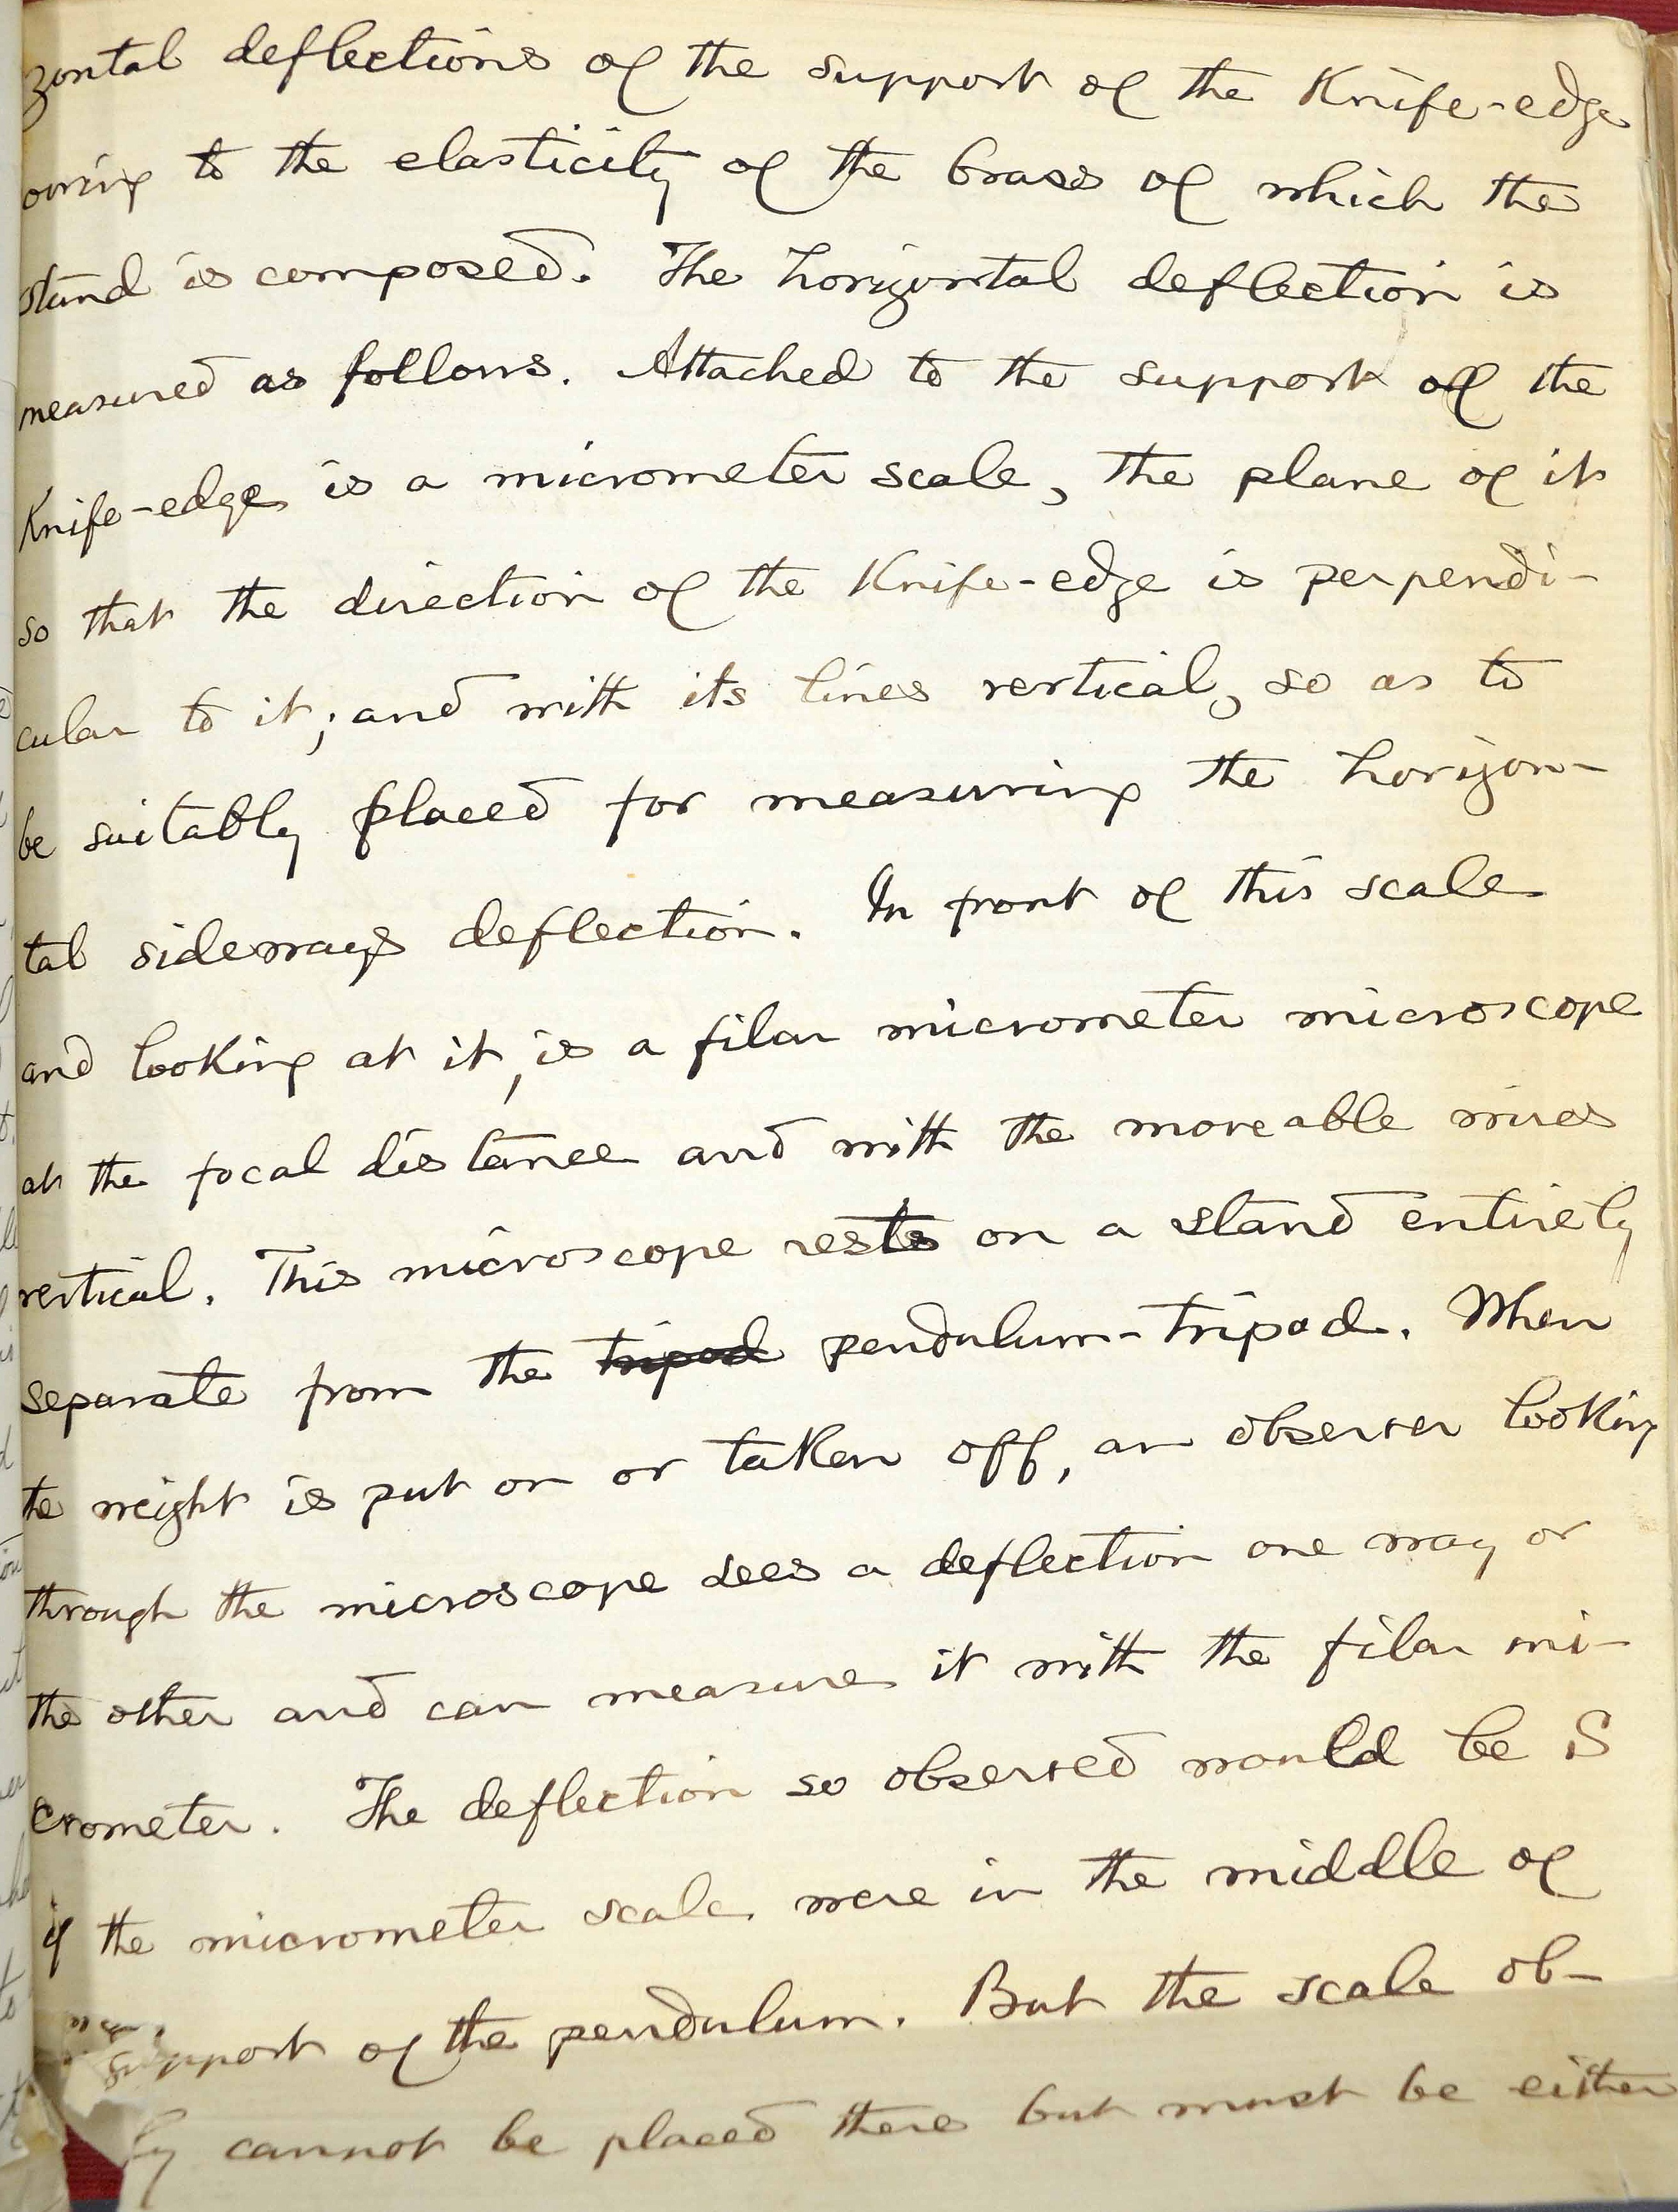 zontal deflections of the support of the Knife-edge
owing to the elasticity of the brass of which the
stand is composed. The horizontal deflection is
measured as follows. Attached to the support of the
Knife-edge is a micrometer scale, the plane of it
so that the direction of the Knife-edge is perpendi-
cular to it; and with its lines vertical, so as to
be suitably placed for measuring the horizon-
tal sideways deflection. In front of this scale
and looking at it, is a filar micrometer microscope
at the focal distance and with the moveable wires
vertical. This microscope rests on a stand entirely
separate from the tripod pendulum-tripod. When
the weight is put on or taken off, an observer looking
through the microscope sees a deflection one way or
the other and can measure it with the filar mi-
crometer. The deflection so observed would be S
if the micrometer scale were in the middle of
support of the pendulum. But the scale ob-
ly cannot be placed there but must be either